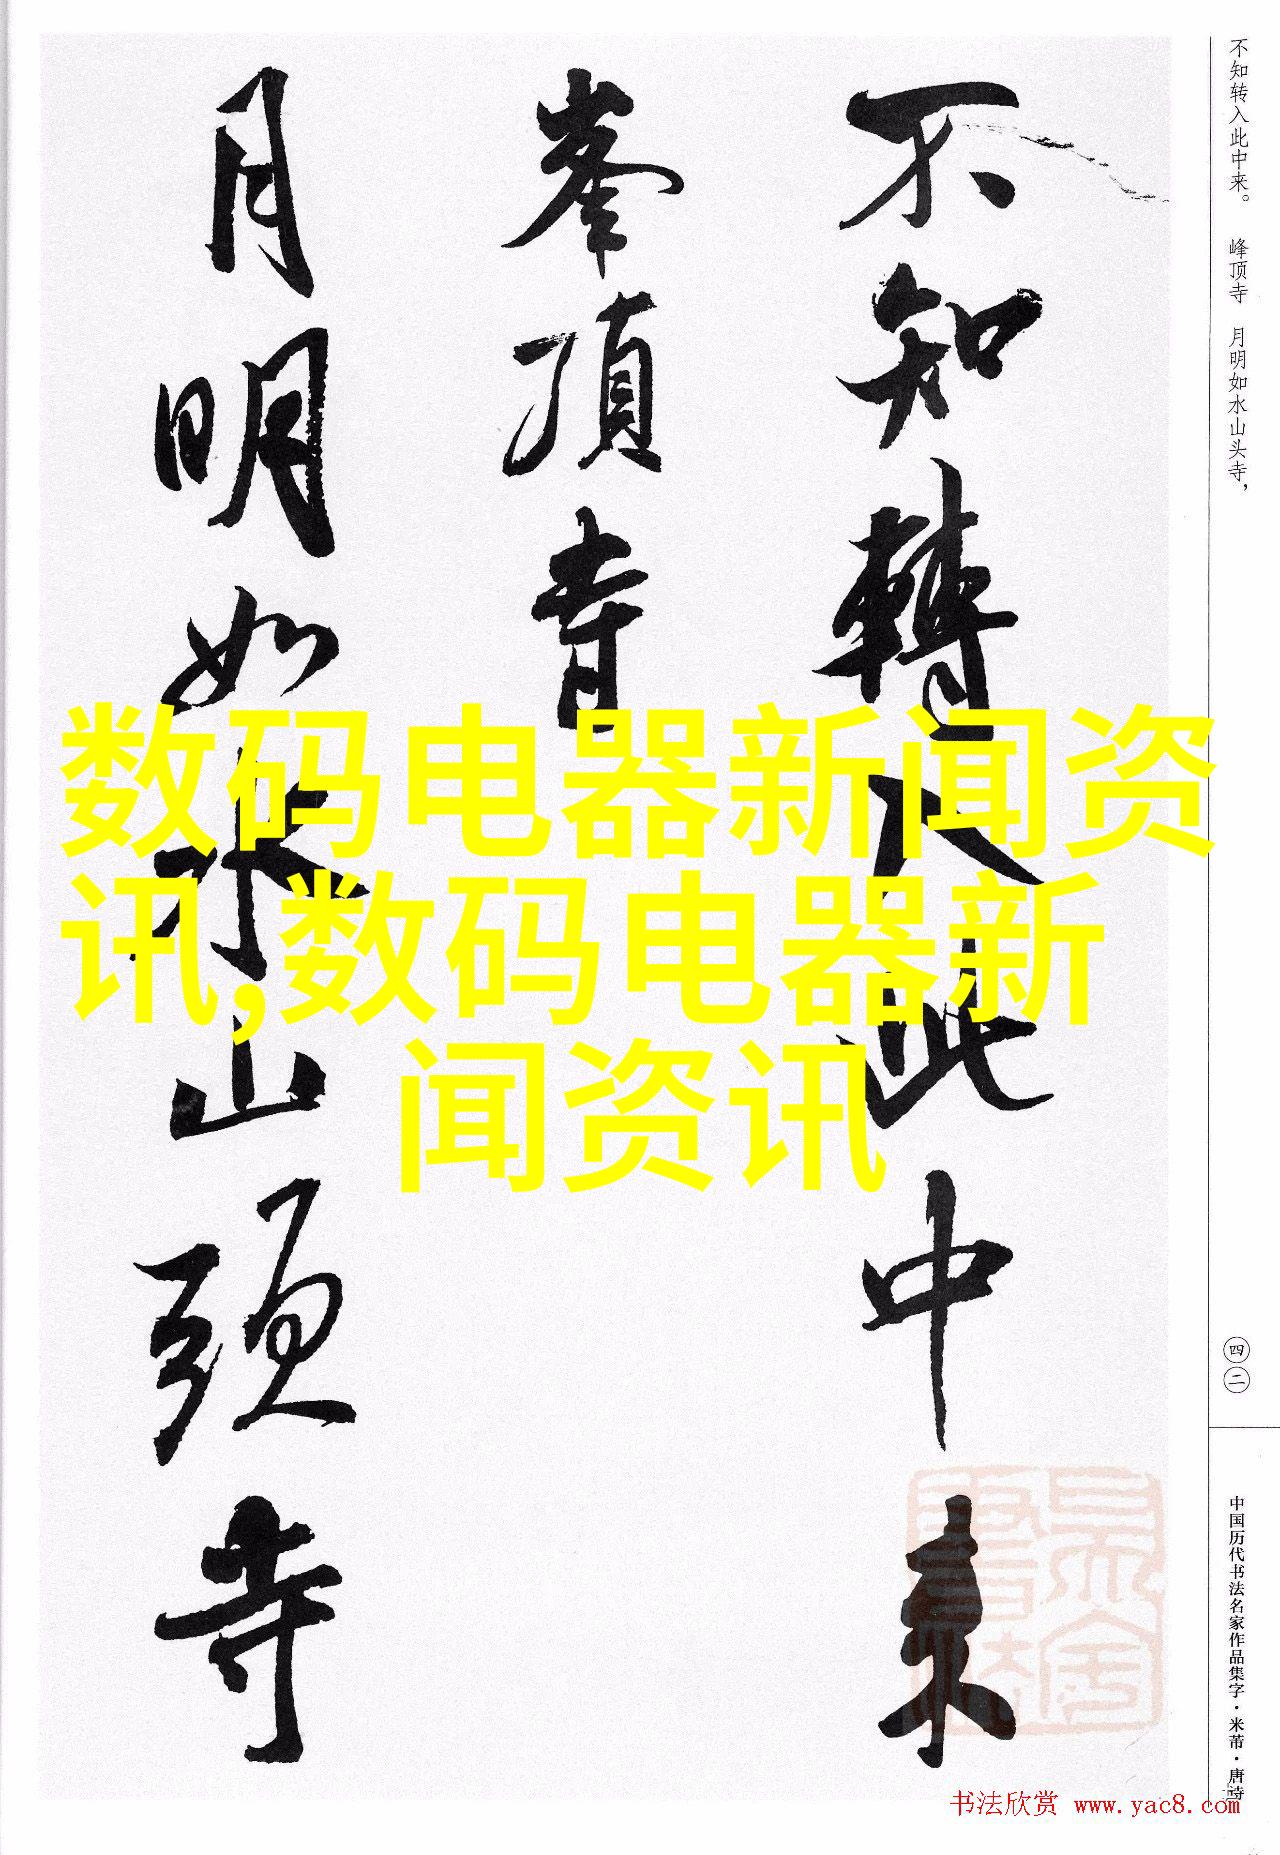 不知轉入此中来
峯頂寺
月明如水山頭寺
不知转入此中来。 峰顶寺 月明如水山头寺，
四二
中国历代书法名家作品集字·米芾·唐诗
数码电器新闻资
讯,数码电器新
闻资讯
书法欣赏 www.yac8.com